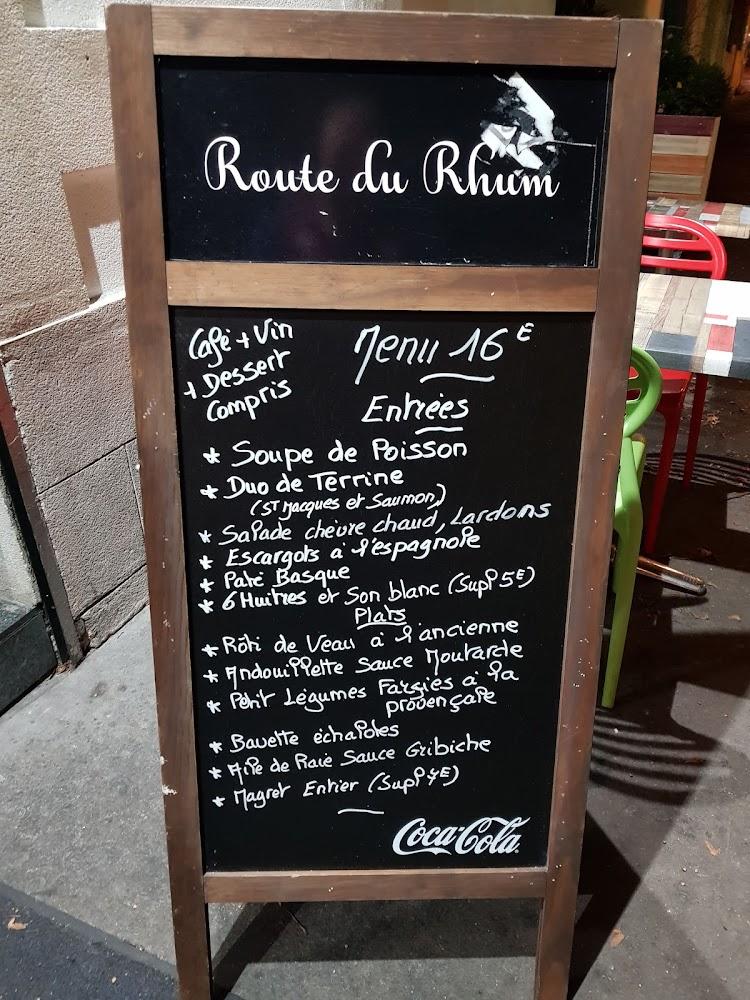 Route du Rhum
Café + Vin
+ Dessert
Compris
Menu 16E
Entrées
* Soupe de Poisson
* Duo de Terrine
(St Jacques et Saumon)
* Salade chèvre chaud, Lardons
* Escargots à l'espagnole
* Paté Basque
* 6 Huitres et Son blanc (Suppt 5E)
Plats
* Rôti de Veau à l'ancienne
* Andouillette Sauce Moutarde
* Petit Légumes Farcies à la
provençale
* Bavette échalotes
* Aile de Raie Sauce Gribiche
* Magret Entier (Suppt 4E)
Coca-Cola